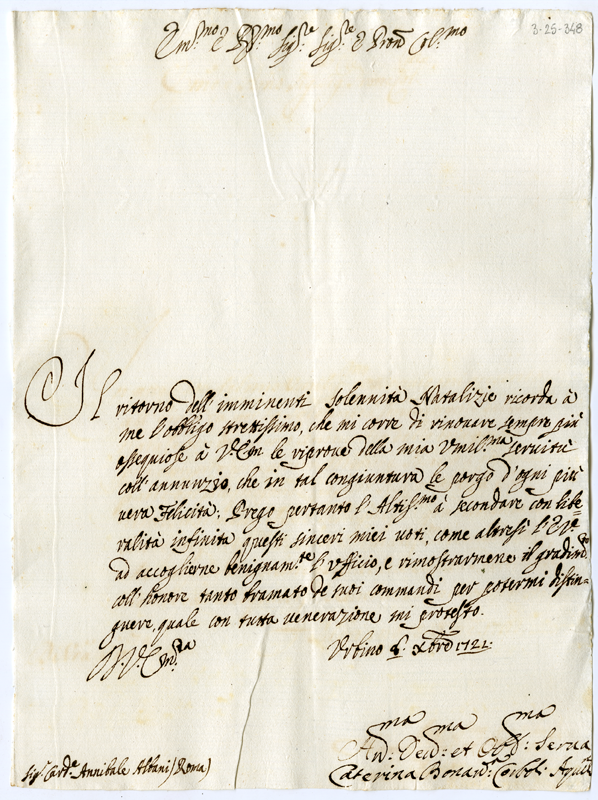 3-25-348
Em.mo e R.mo Sig.re Sig.re e Pron Col.mo
Il ritorno dell'imminenti Solennità Natalizie ricorda à
me l'obbligo strettissimo, che mi corre di rinovare sempre più
ossequiose à V. Em le riprove della mia Umil.ma servitù
coll'annunzio, che in tal congiuntura le porgo d'ogni più
vera Felicità: Prego pertanto l'Altiss.mo à secondare con libe=
ralità infinita questi sinceri miei voti, come altresì l'E.V.a
ad accoglierne benignam.te l'Ufficio, e rimostrarmene il gradim.to
coll'honore tanto bramato de suoi commandi per potermi distin=
guere, quale con tutta venerazione mi protesto.
D. V. Em.za
Urbino 8. Xbre 1721.
Um.ma Dev.ma et Obb.ma Serva
Caterina Bonav.
Sig.r Card.e Annibale Albani (Roma)